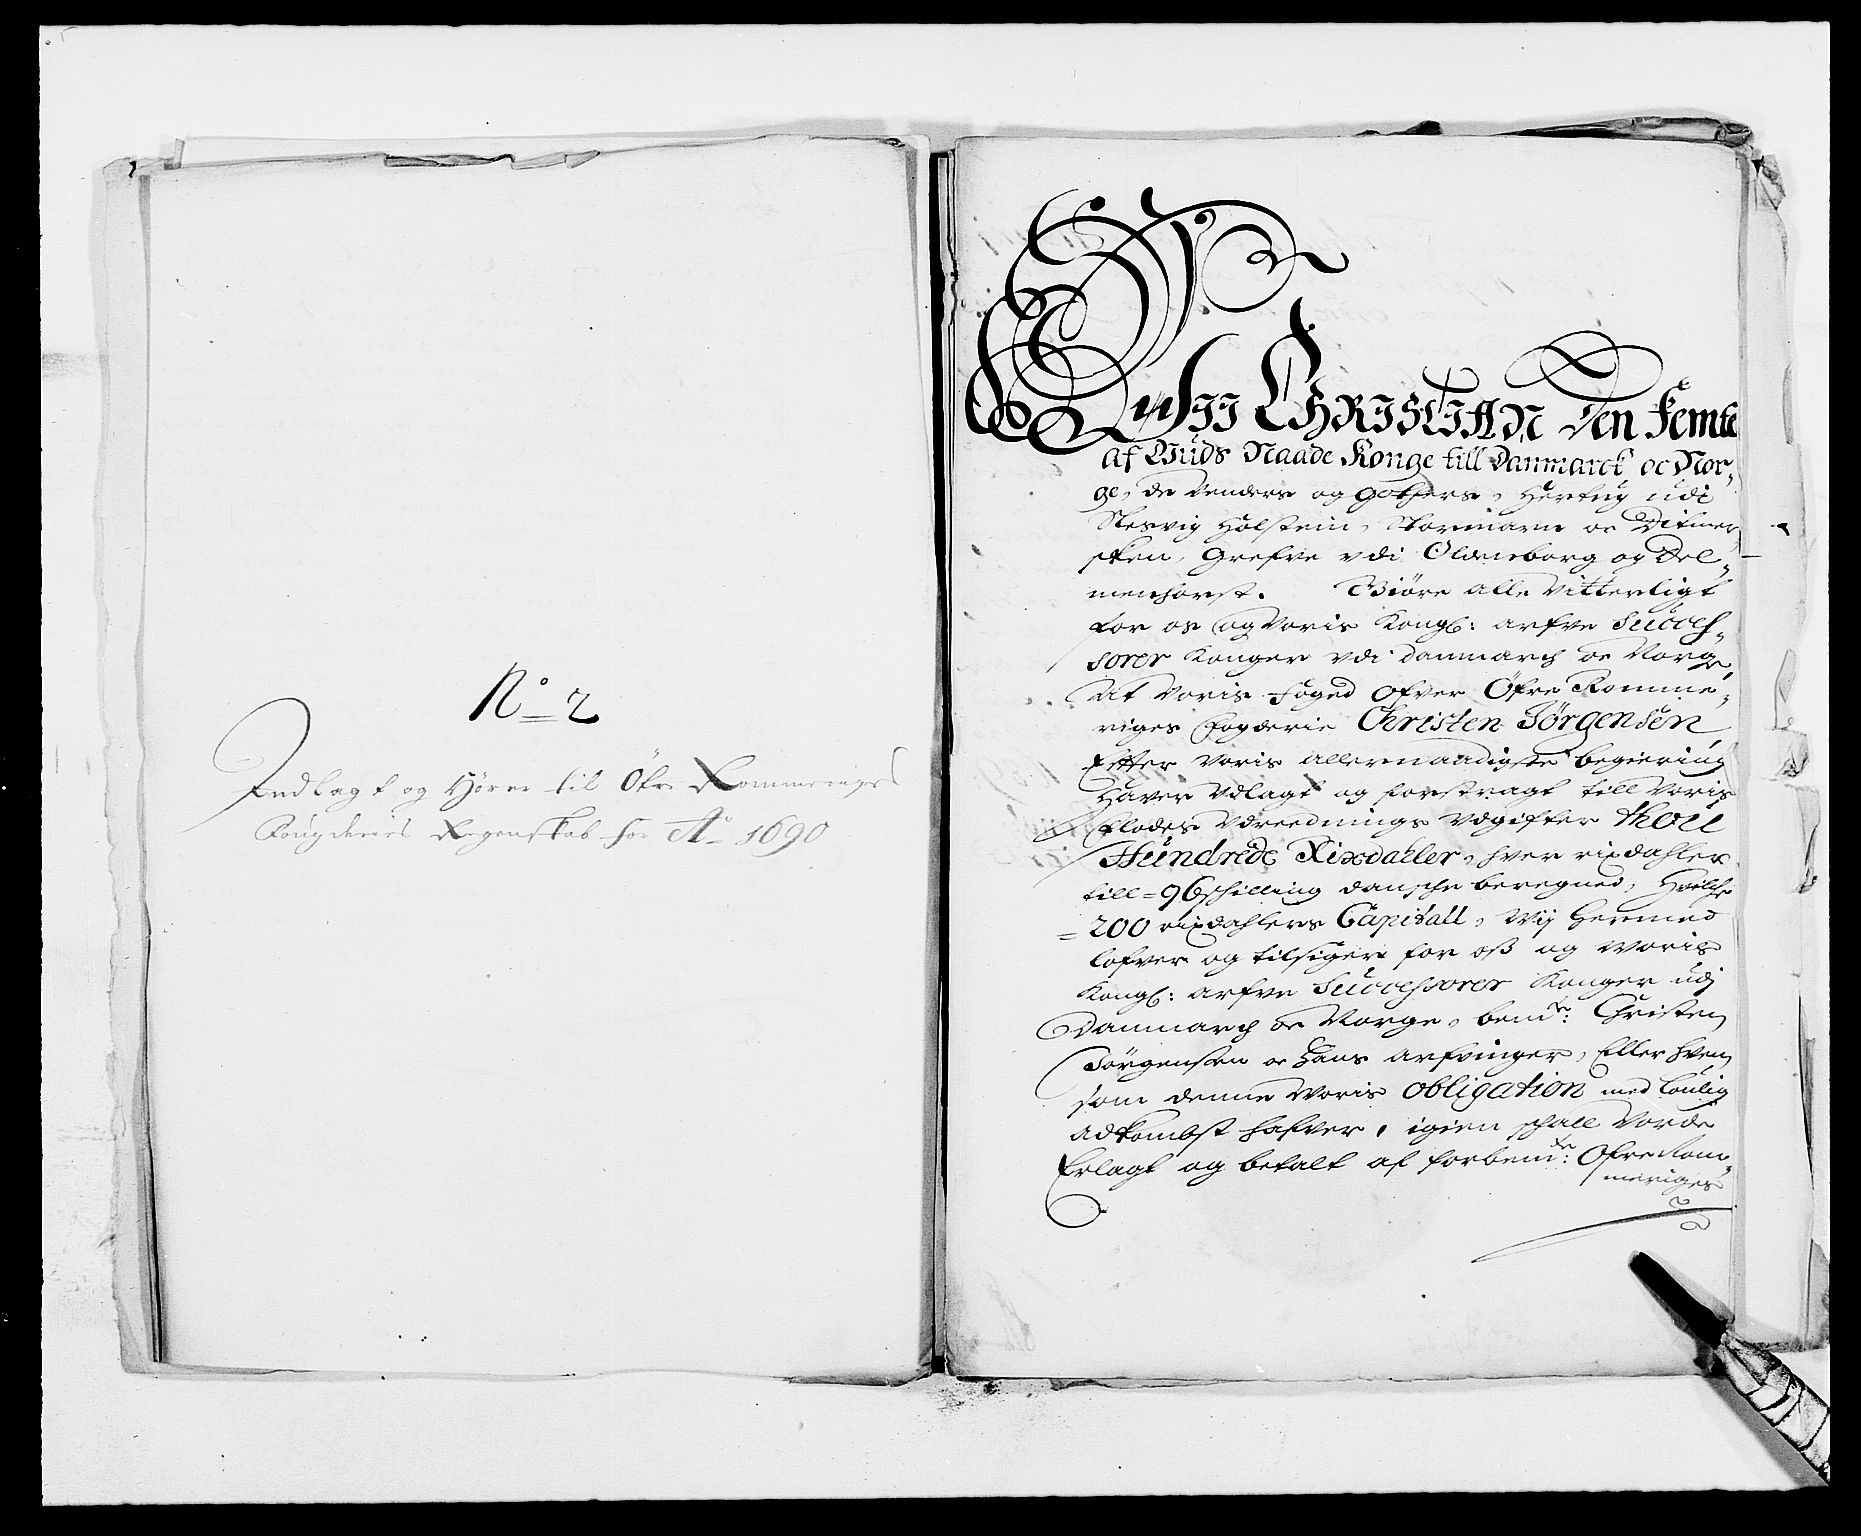 No 2
Indlagt og Hörer til Öfre Rommeriges
Fougderies Regenskab for Ao 1690
Wii CHRISTIAN Den Femte
af Guds Naade Konge till Danmarck oc Nor-
ge, de Venders og Gothers, Hertug udi
Slesvig Holstein, Stormarn oc Ditmer
sken, Grefve vdi Oldenborg og Del-
menhorst. Giöre alle Vitterligt
for os og Voris Kongl: arfve Succes-
sorer Konger vdi Danmarch oc Norge,
At Voris Foged Ofver Öfre Romme-
riges Fogderie Christen Jörgensen
Effter Voris allernaadigste begiering
Haver Udlagt og forstragt till Voris
Flodes Udreednings Udgifter thoe
Hundrede Rixdaller, hver rixdahler
till =96 schilling dansche beregned, Hvilche
=200 rixdahlers Capitall, Wij hermed
lofver og tilsiger for oß og Woris
Kongl: arfve Successorer Konger udj
Danmarch oc Norge, bemte: Christen
Jörgensen oc Hans arfvinger, Eller hvem
som denne Woris Obligation med loulig
adkombst hafver, igien schall Vorde
Erlagt og betalt af forbemte: Ofre Rom-
meriges